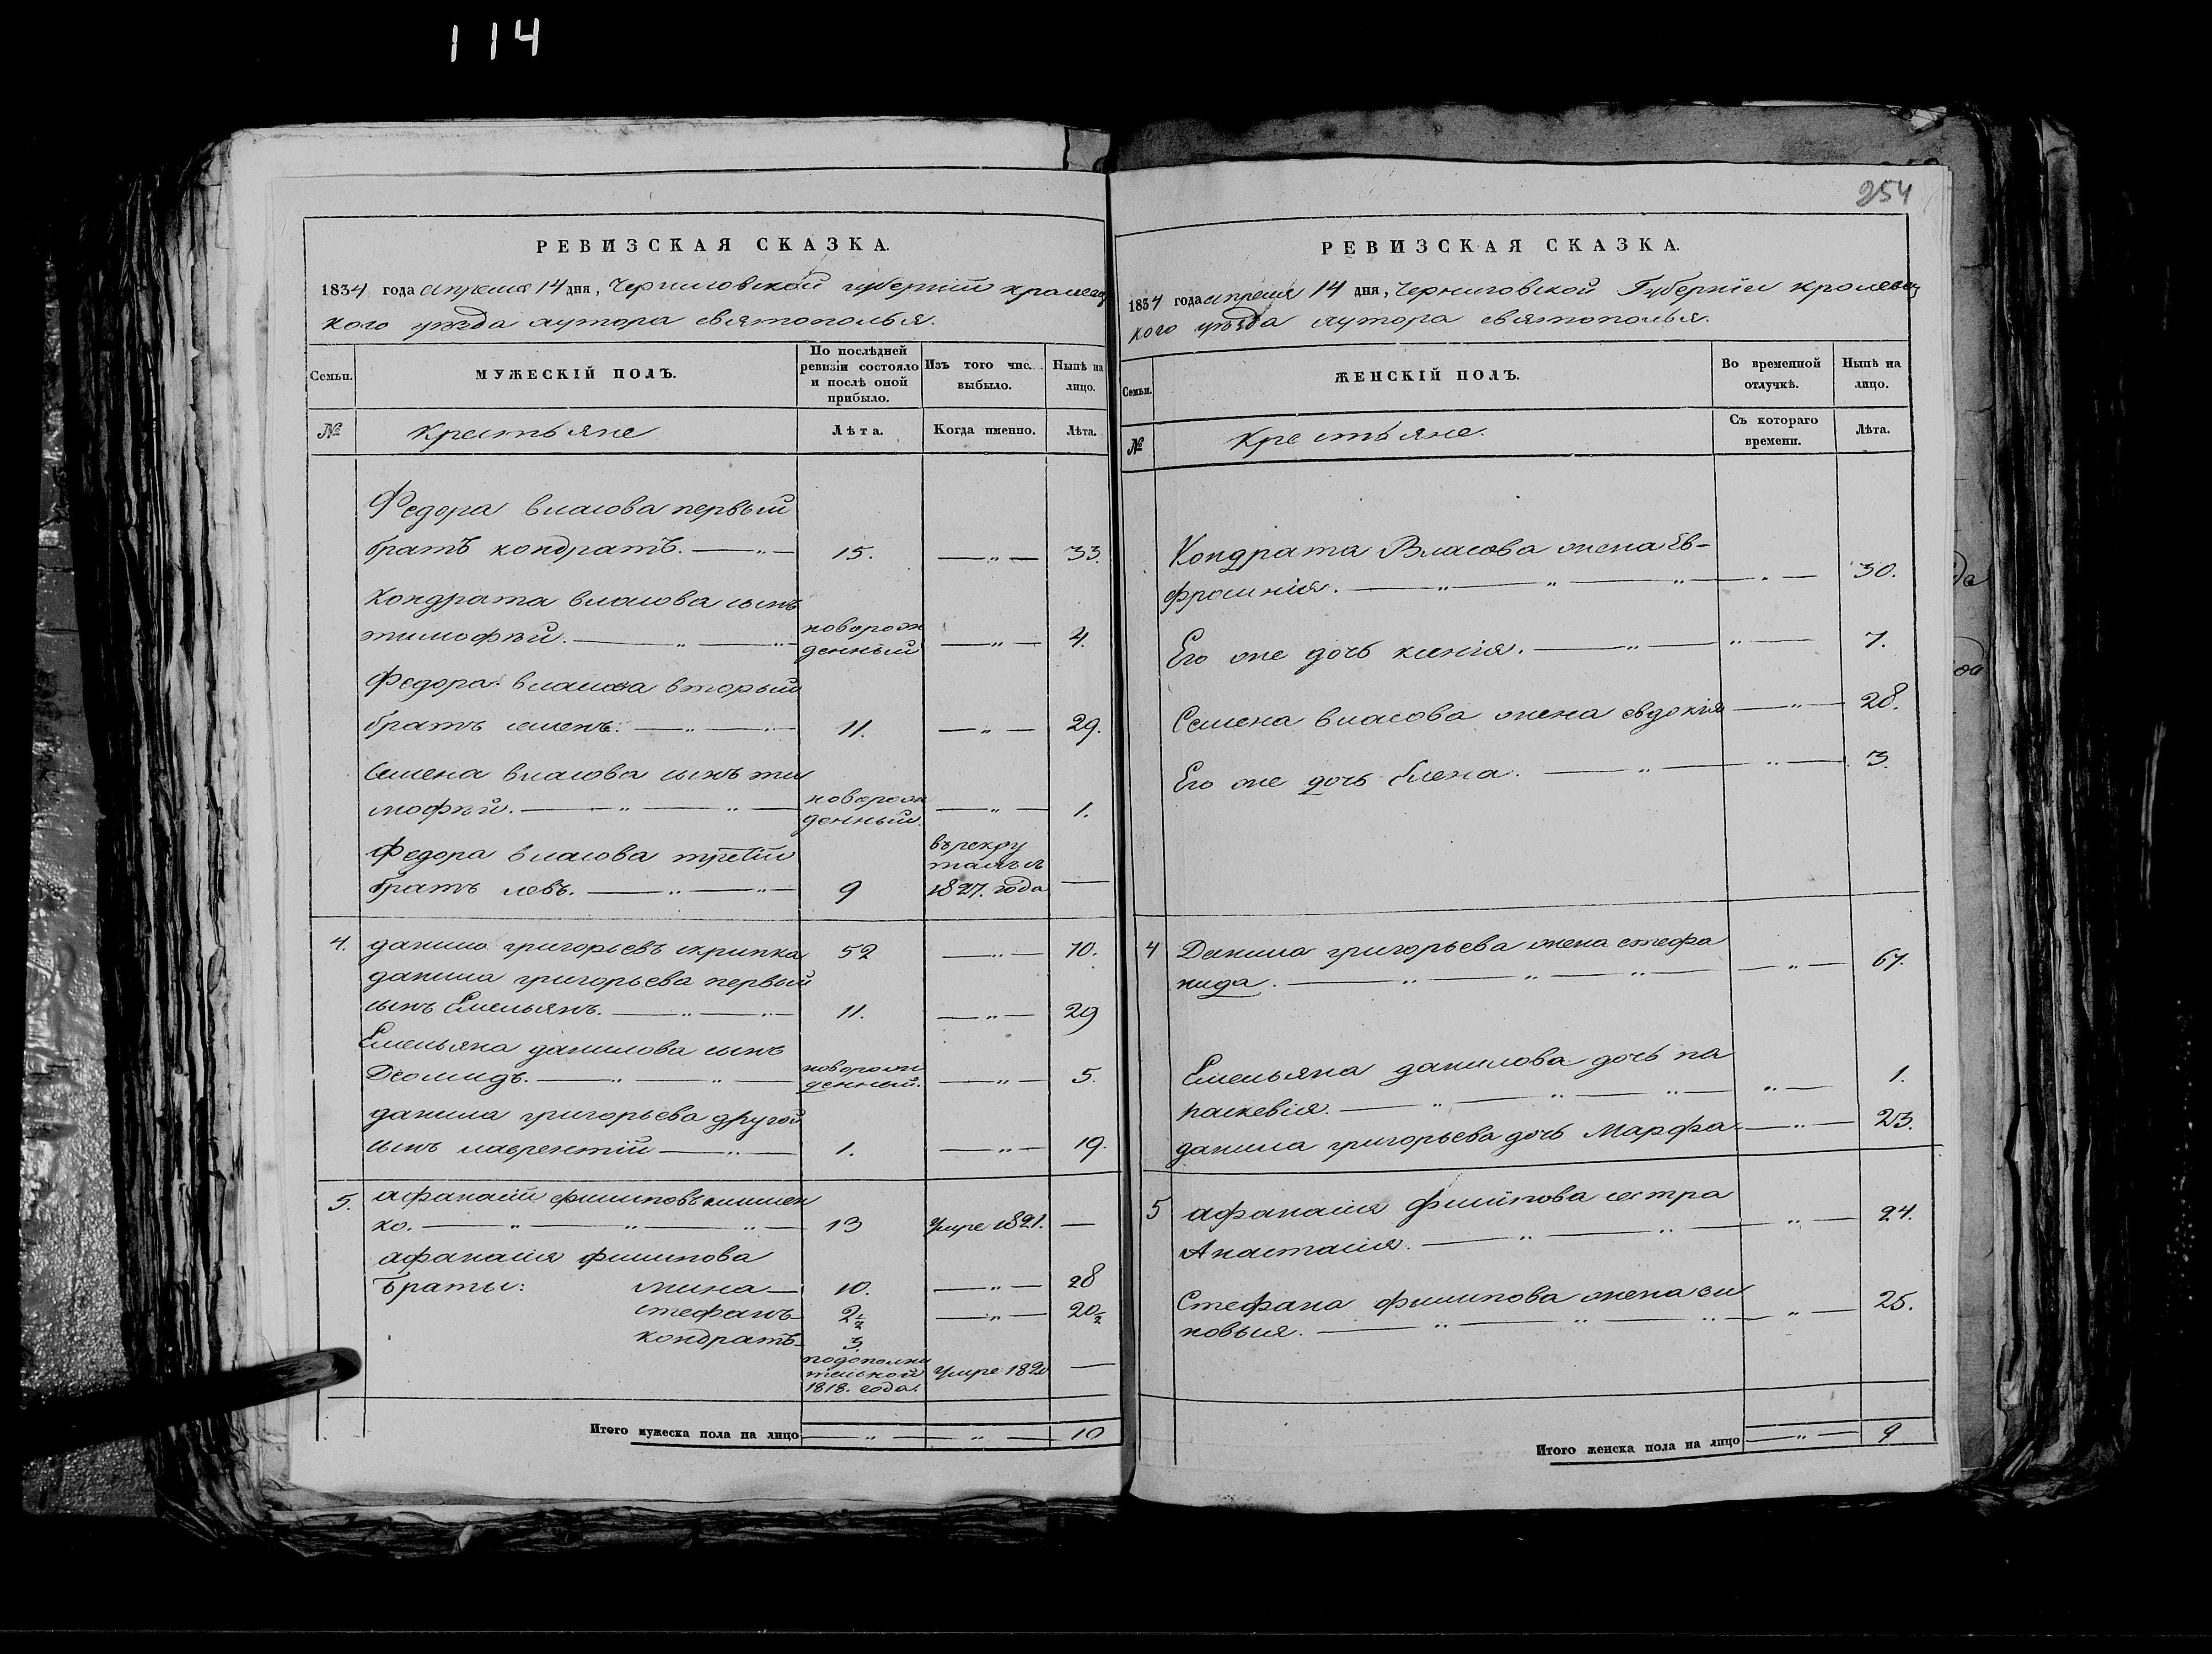 114
254
РЕВИЗСКАЯ СКАЗКА.
1834 года апреля 14 дня, Черниговской губерніи кролевец
кого уѣзда хутора святополья.
Семьи.
МУЖЕСКІЙ ПОЛЪ.
По послѣдней ревизіи состояло и послѣ оной прибыло.
Изъ того чис. выбыло.
Нынѣ на лицо.
№
крестьяне
Лѣта.
Когда именно.
Лѣта.
Федора власова первый
братъ кондратъ. — 15. — 33.
Кондрата власова сынъ
тимофѣй. — новорож
денный — 4.
Федора власова вторый
братъ семенъ. — 11. — 29.
Семена власова сынъ ти
мофѣй. — новорож
денный. — 1.
Федора власова третій
братъ левъ. — 9 въ рекру
1827. года —
4. данило григорьевъ скрипка 52 — 70.
данила григорьева первый
сынъ Емельянъ. — 11. — 29
Емельяна данилова сынъ
Деомидъ. — новорож
денный. — 5.
данила григорьева другой
сынъ лаврентій — 1. — 19.
5. афанасій филиповъ
ко. — 13 Умре 1821. —
афанасия филипова
браты: мина — 10. — 28
стефанъ 2½ — 20½
кондратъ 3.
подополни
тельной
1818. года. Умре 1820 —
Итого мужеска пола на лицо — 10
РЕВИЗСКАЯ СКАЗКА.
1834 года апреля 14 дня, Черниговской Губерніи кролевец
кого уѣзда хутора святополья.
Семьи.
ЖЕНСКІЙ ПОЛЪ.
Во временной отлучкѣ.
Нынѣ на лицо.
№
крестьяне.
Съ котораго времени.
Лѣта.
Кондрата Власова жена Ев-
фросинія. — 30.
Его же дочь ксенія. — 7.
Семена власова жена евдокія — 28.
Его же дочь Елена. — 3.
4 Данила григорьева жена стефа
нида. — 67.
Емельяна данилова дочь па
раскевія. — 1.
данила григорьева дочь Марфа — 23.
5 афанасия Филипова сестра
Анастасия. — 24.
Стефана филипова жена зи
новья. — 25.
Итого женска пола на лицо — 9